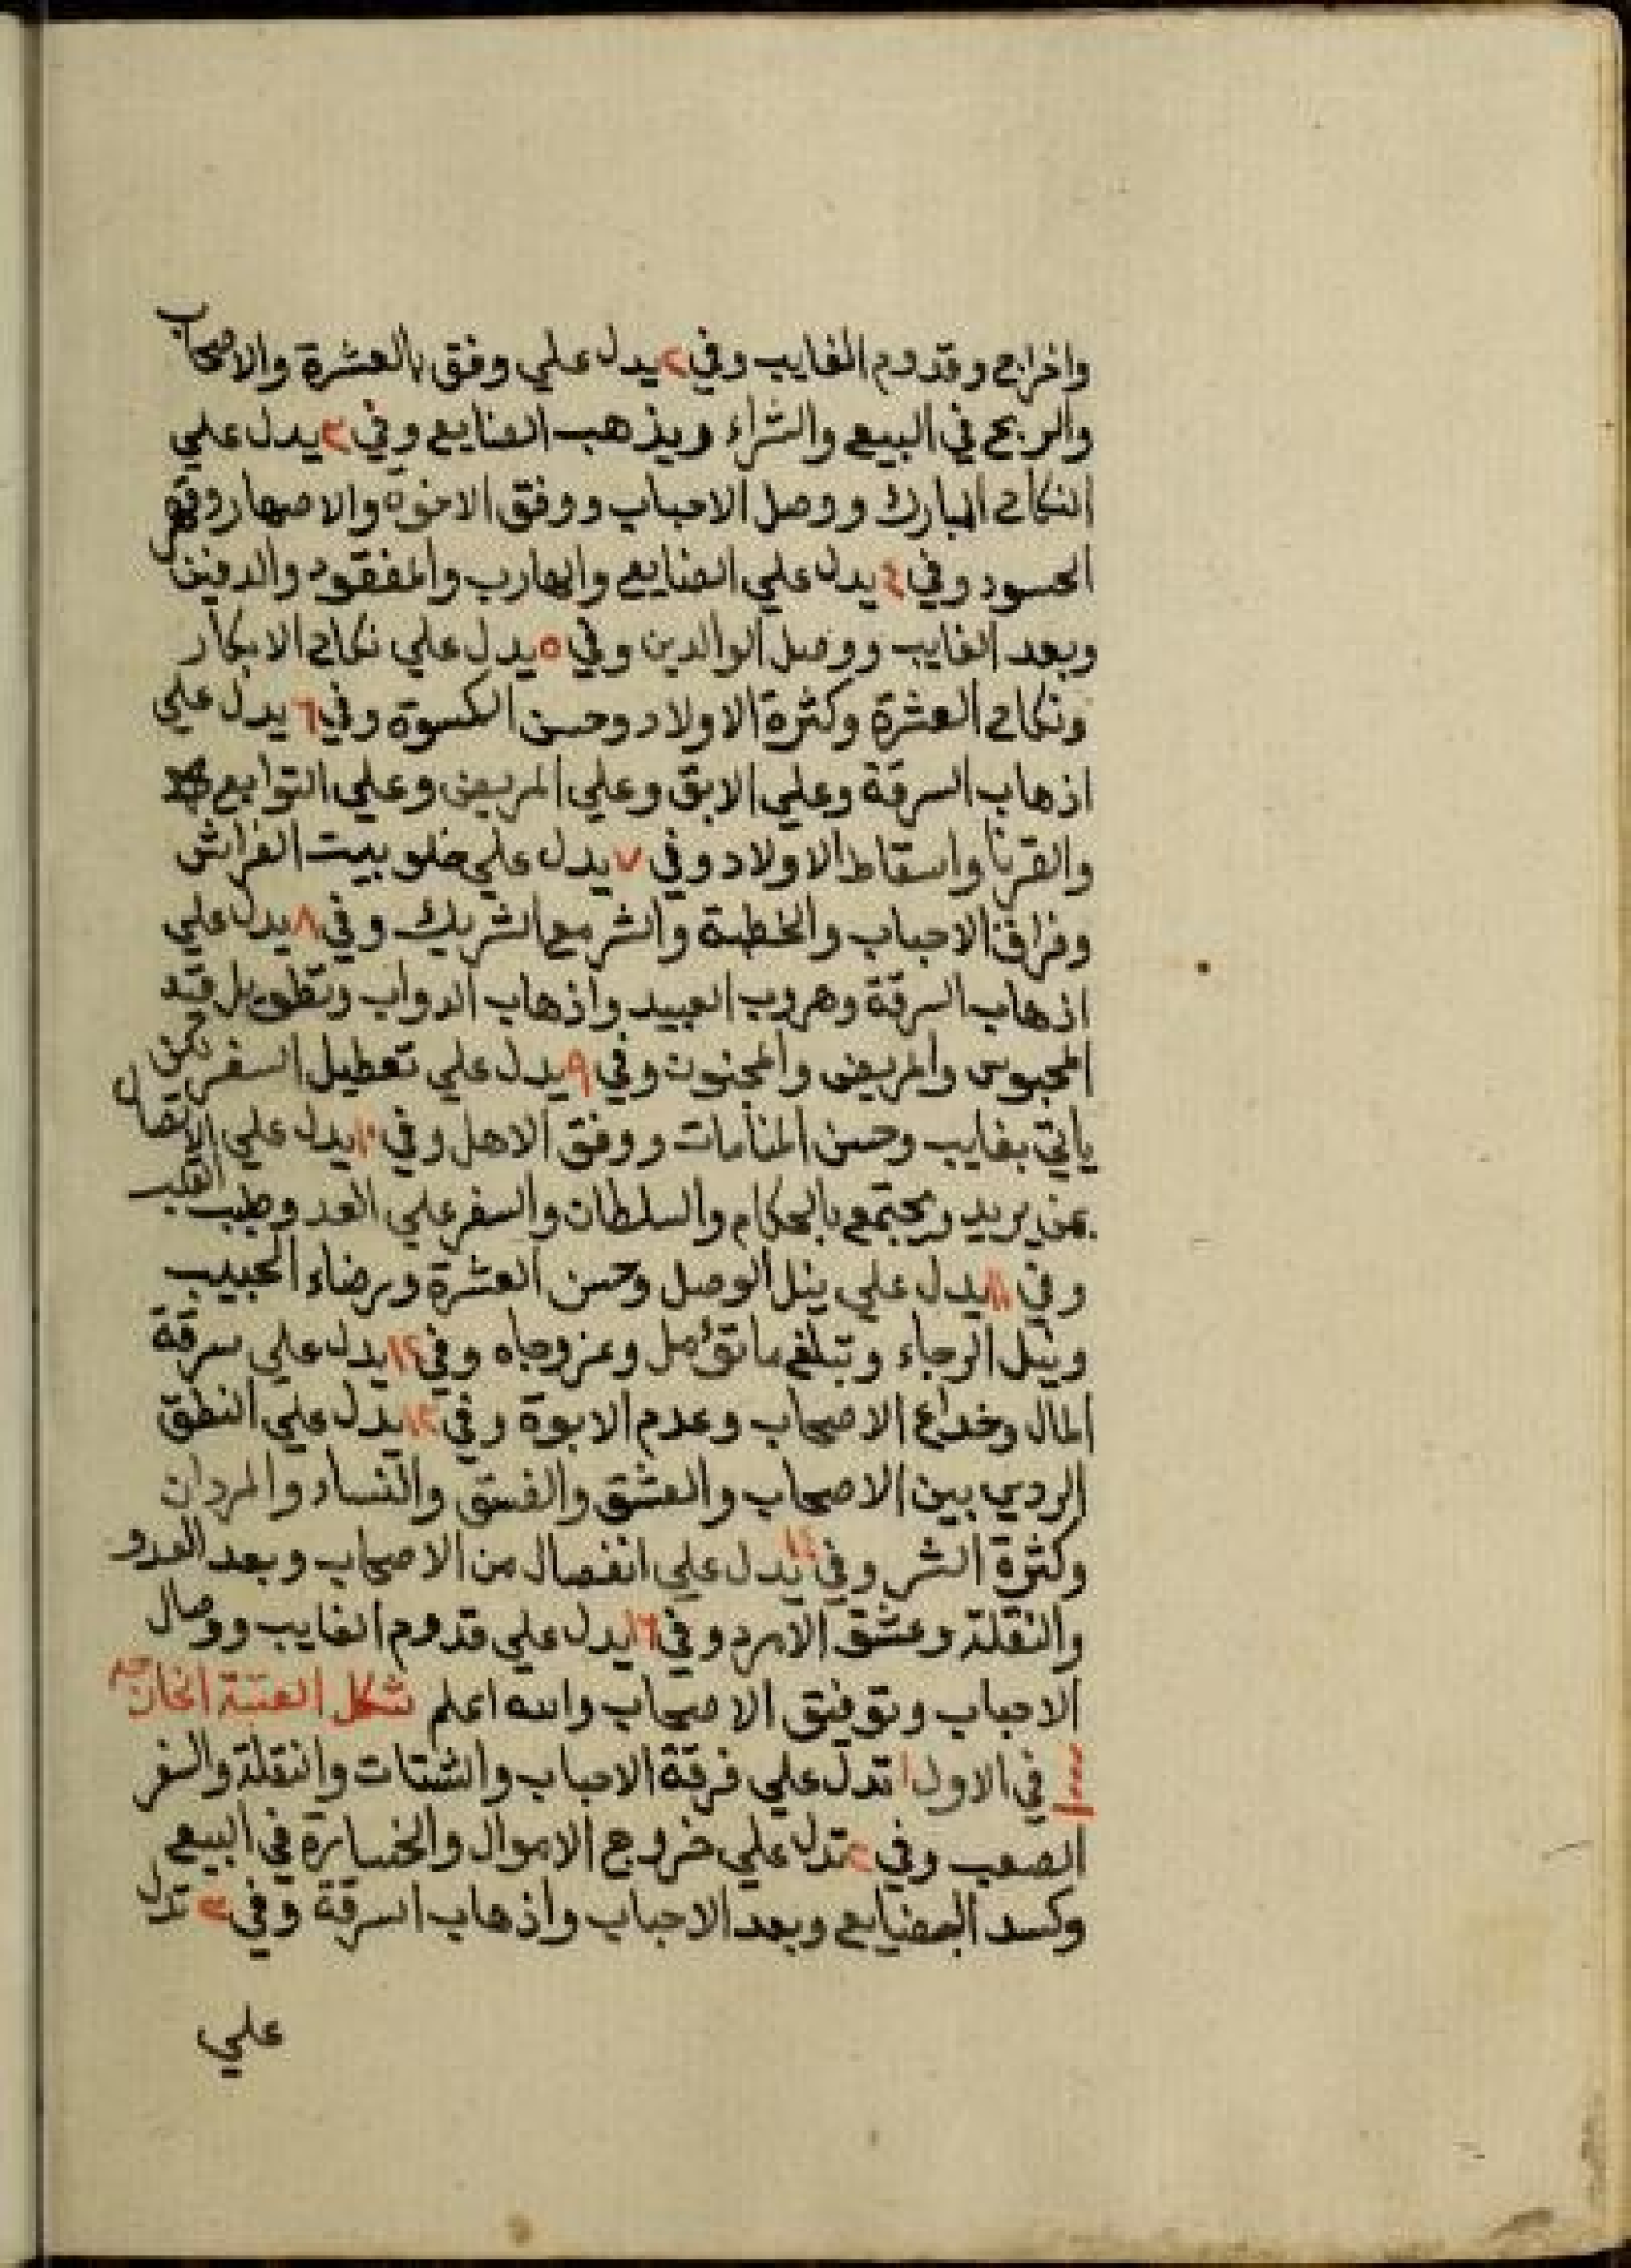 واخراج وقدوم الغايب وفي ٢ يدل علي وفق بالعشرة والاصحاب
والربح في البيع والشراء ويذهب الضايع وفي ٣ يدل علي
النكاح المبارك ووصل الاحباب ووفق الاخوة والاصهار وقهر
الحسود وفي ٤ يدل علي الضايع والهارب والمفقود والدفين
وبعد الغايب ووصل الوالدين وفي ٥ يدل علي نكاح الابكار
ونكاح العشرة وكثرة الاولاد وحسن الكسوة وفي ٦ يدل علي
اذهاب السرقة وعلي الابق وعلي المريض وعلي التوابع
والقرنا واسقاط الاولاد وفي ٧ يدل علي خلو بيت الفراش
وفراق الاحباب والخطبة والشر مع الشريك وفي ٨ يدل علي
اذهاب السرقة وهروب العبيد واذهاب الدواب وتطويل قيد
المحبوس والمريض والمجنون وفي ٩ يدل علي تعطيل السفر
ياتي بغايب وحسن المنامات ووفق الاهل وفي ١٠ يدل علي الاتصال
بمن يريد ويجتمع بالحكام والسلطان والسفر علي العدو وطيب القلب
وفي ١١ يدل علي ينل الوصل وحسن العشرة ورضاء الحبيب
وينل الرجاء وتبلغ ماتؤمل وعز وجاه وفي ١٢ يدل علي سرقة
المال وخداع الاصحاب وعدم الابوة وفي ١٣ يدل علي النطق
الردي بين الاصحاب والعشق والفسق والنساء والمردان
وكثرة الشر وفي ١٤ يدل علي انفصال من الاصحاب وبعد العدو
والنقلة وعشق الامرد وفي ١٦ يدل علي قدوم الغايب ووصال
الاحباب وتوفيق الاصحاب والله اعلم شكل العتبة الخارجه
في الاول ١ تدل علي فرقة الاحباب والشتات والنقلة والسفر
الصعب وفي ٢ تدل علي خروج الاموال والخسارة في البيع
وكسد البضايع وبعد الاحباب واذهاب السرقة وفي ٣ تدل
علي